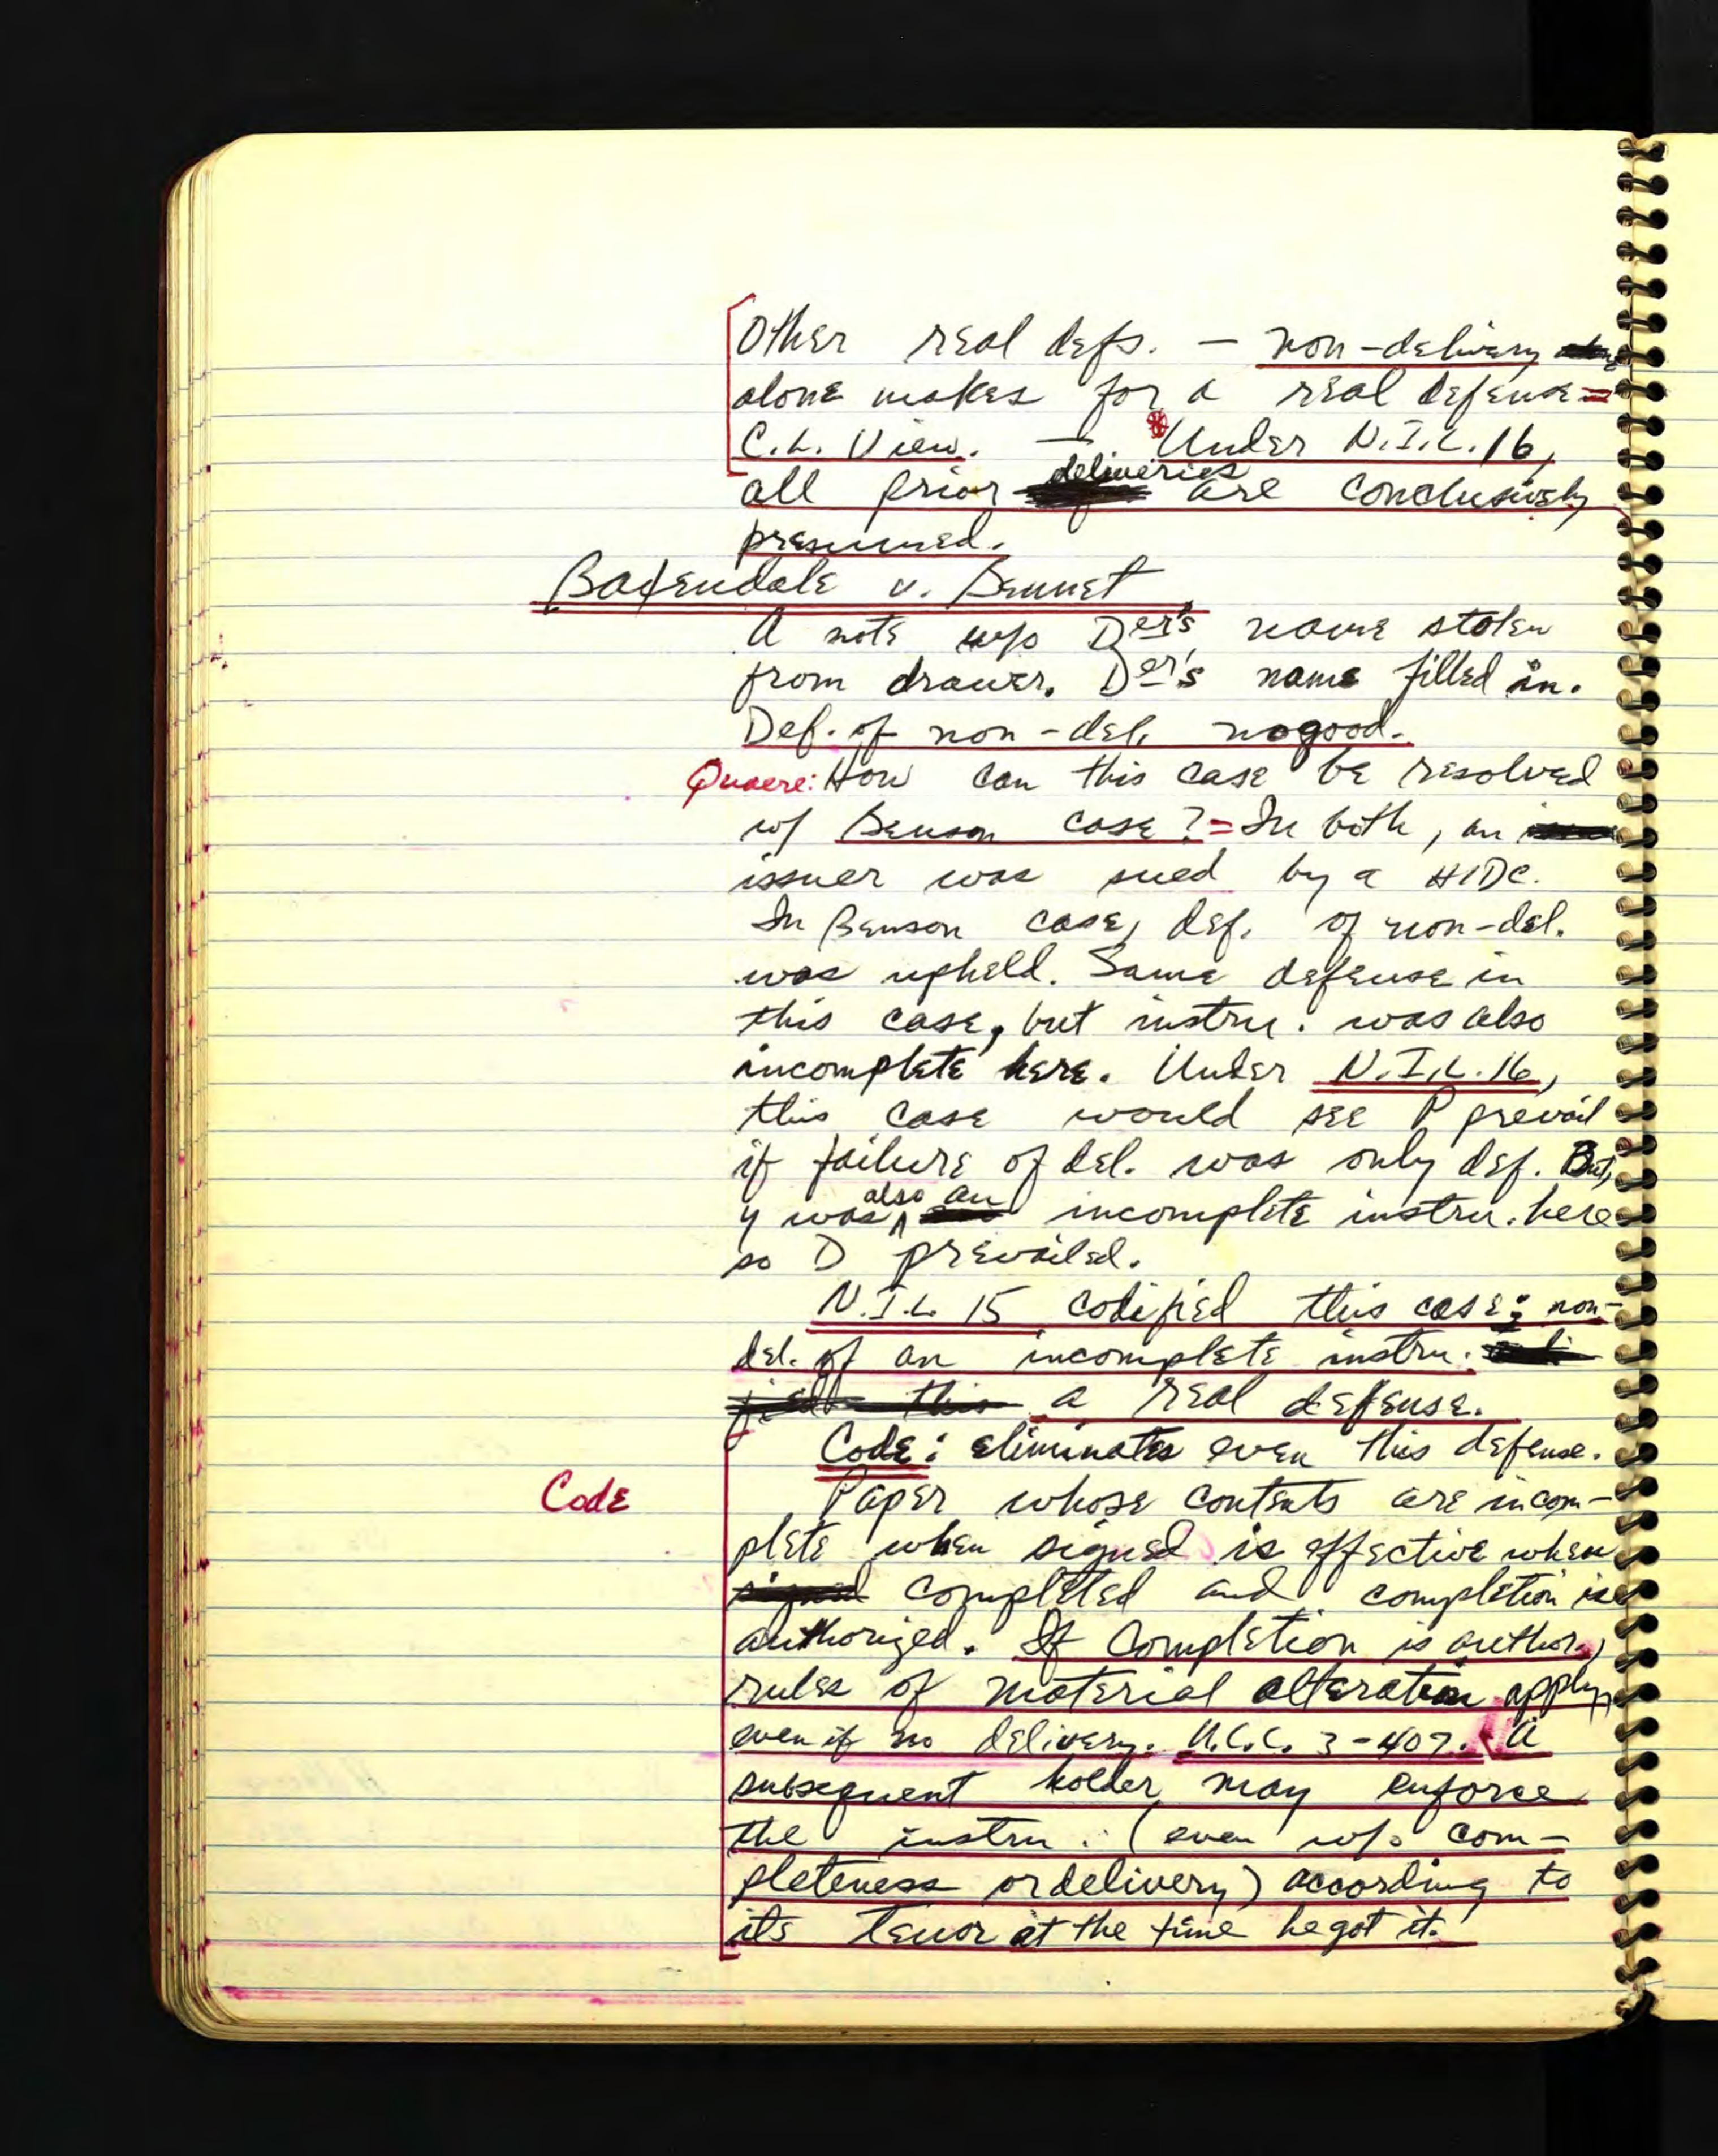 Other real defs. — non-delivery
alone makes for a real defense =
C.L. View. — * Under N.I.L. 16,
all prior deliveries are conclusively
presumed.
Baxendale v. Bennet
A note w/o Der's name stolen
from drawer. Der's name filled in.
Def. of non-del. no good.
Quaere: How can this case be resolved
w/ Benson case? = In both, an
issuer was sued by a HIDC.
In Benson case, def. of non-del.
was upheld. Same defense in
this case, but instru. was also
incomplete here. Under N.I.L. 16,
this case would see P prevail
if failure of del. was only def. But,
y was also an incomplete instru. here
so D prevailed.
N.I.L. 15 codified this case: non-
del. of an incomplete instru.
a real defense.
Code: eliminates even this defense.
Code
Paper whose contents are incom-
plete when signed is effective when
completed and completion is
authorized. If completion is author.,
rules of material alteration apply,
even if no delivery. U.C.C. 3-407. A
subsequent holder may enforce
the instru. (even w/o com-
pleteness or delivery) according to
its tenor at the time he got it.